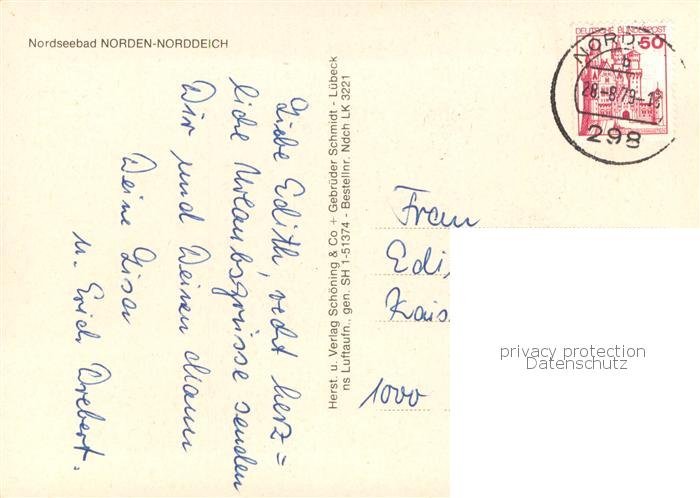 Nordseebad NORDEN-NORDDEICH
Liebe Edith, recht herz=
liche Urlaubsgrüsse senden
Dir und Deinen Mann
Deine Lisa
u. Erich
Herst. u. Verlag Schöning & Co + Gebrüder Schmidt - Lübeck
ns Luftaufn., gen. SH 1-51374 - Bestellnr. Ndch LK 3221
DEUTSCHE BUNDESPOST
50
NORD
b
28.-8.79-18
298
Frau
Edi
Kais
1000
privacy protection
Datenschutz